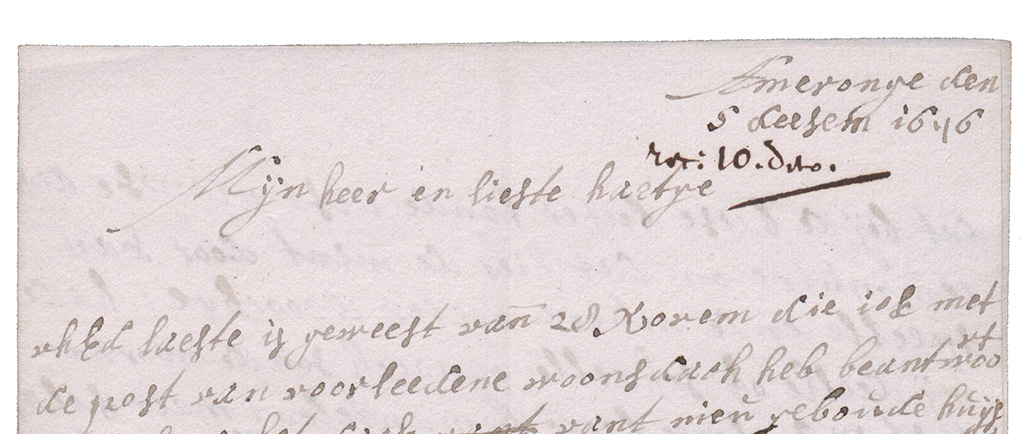 Ameronge den
5 deesem 1676
rec: 10. dito.
Mijn heer en lieste hartje
uhEd laeste is geweest van 28 Novem die ick met
de post van voorleedene woonsdach heb beantwoort
het dack vant nieu geboude huijs